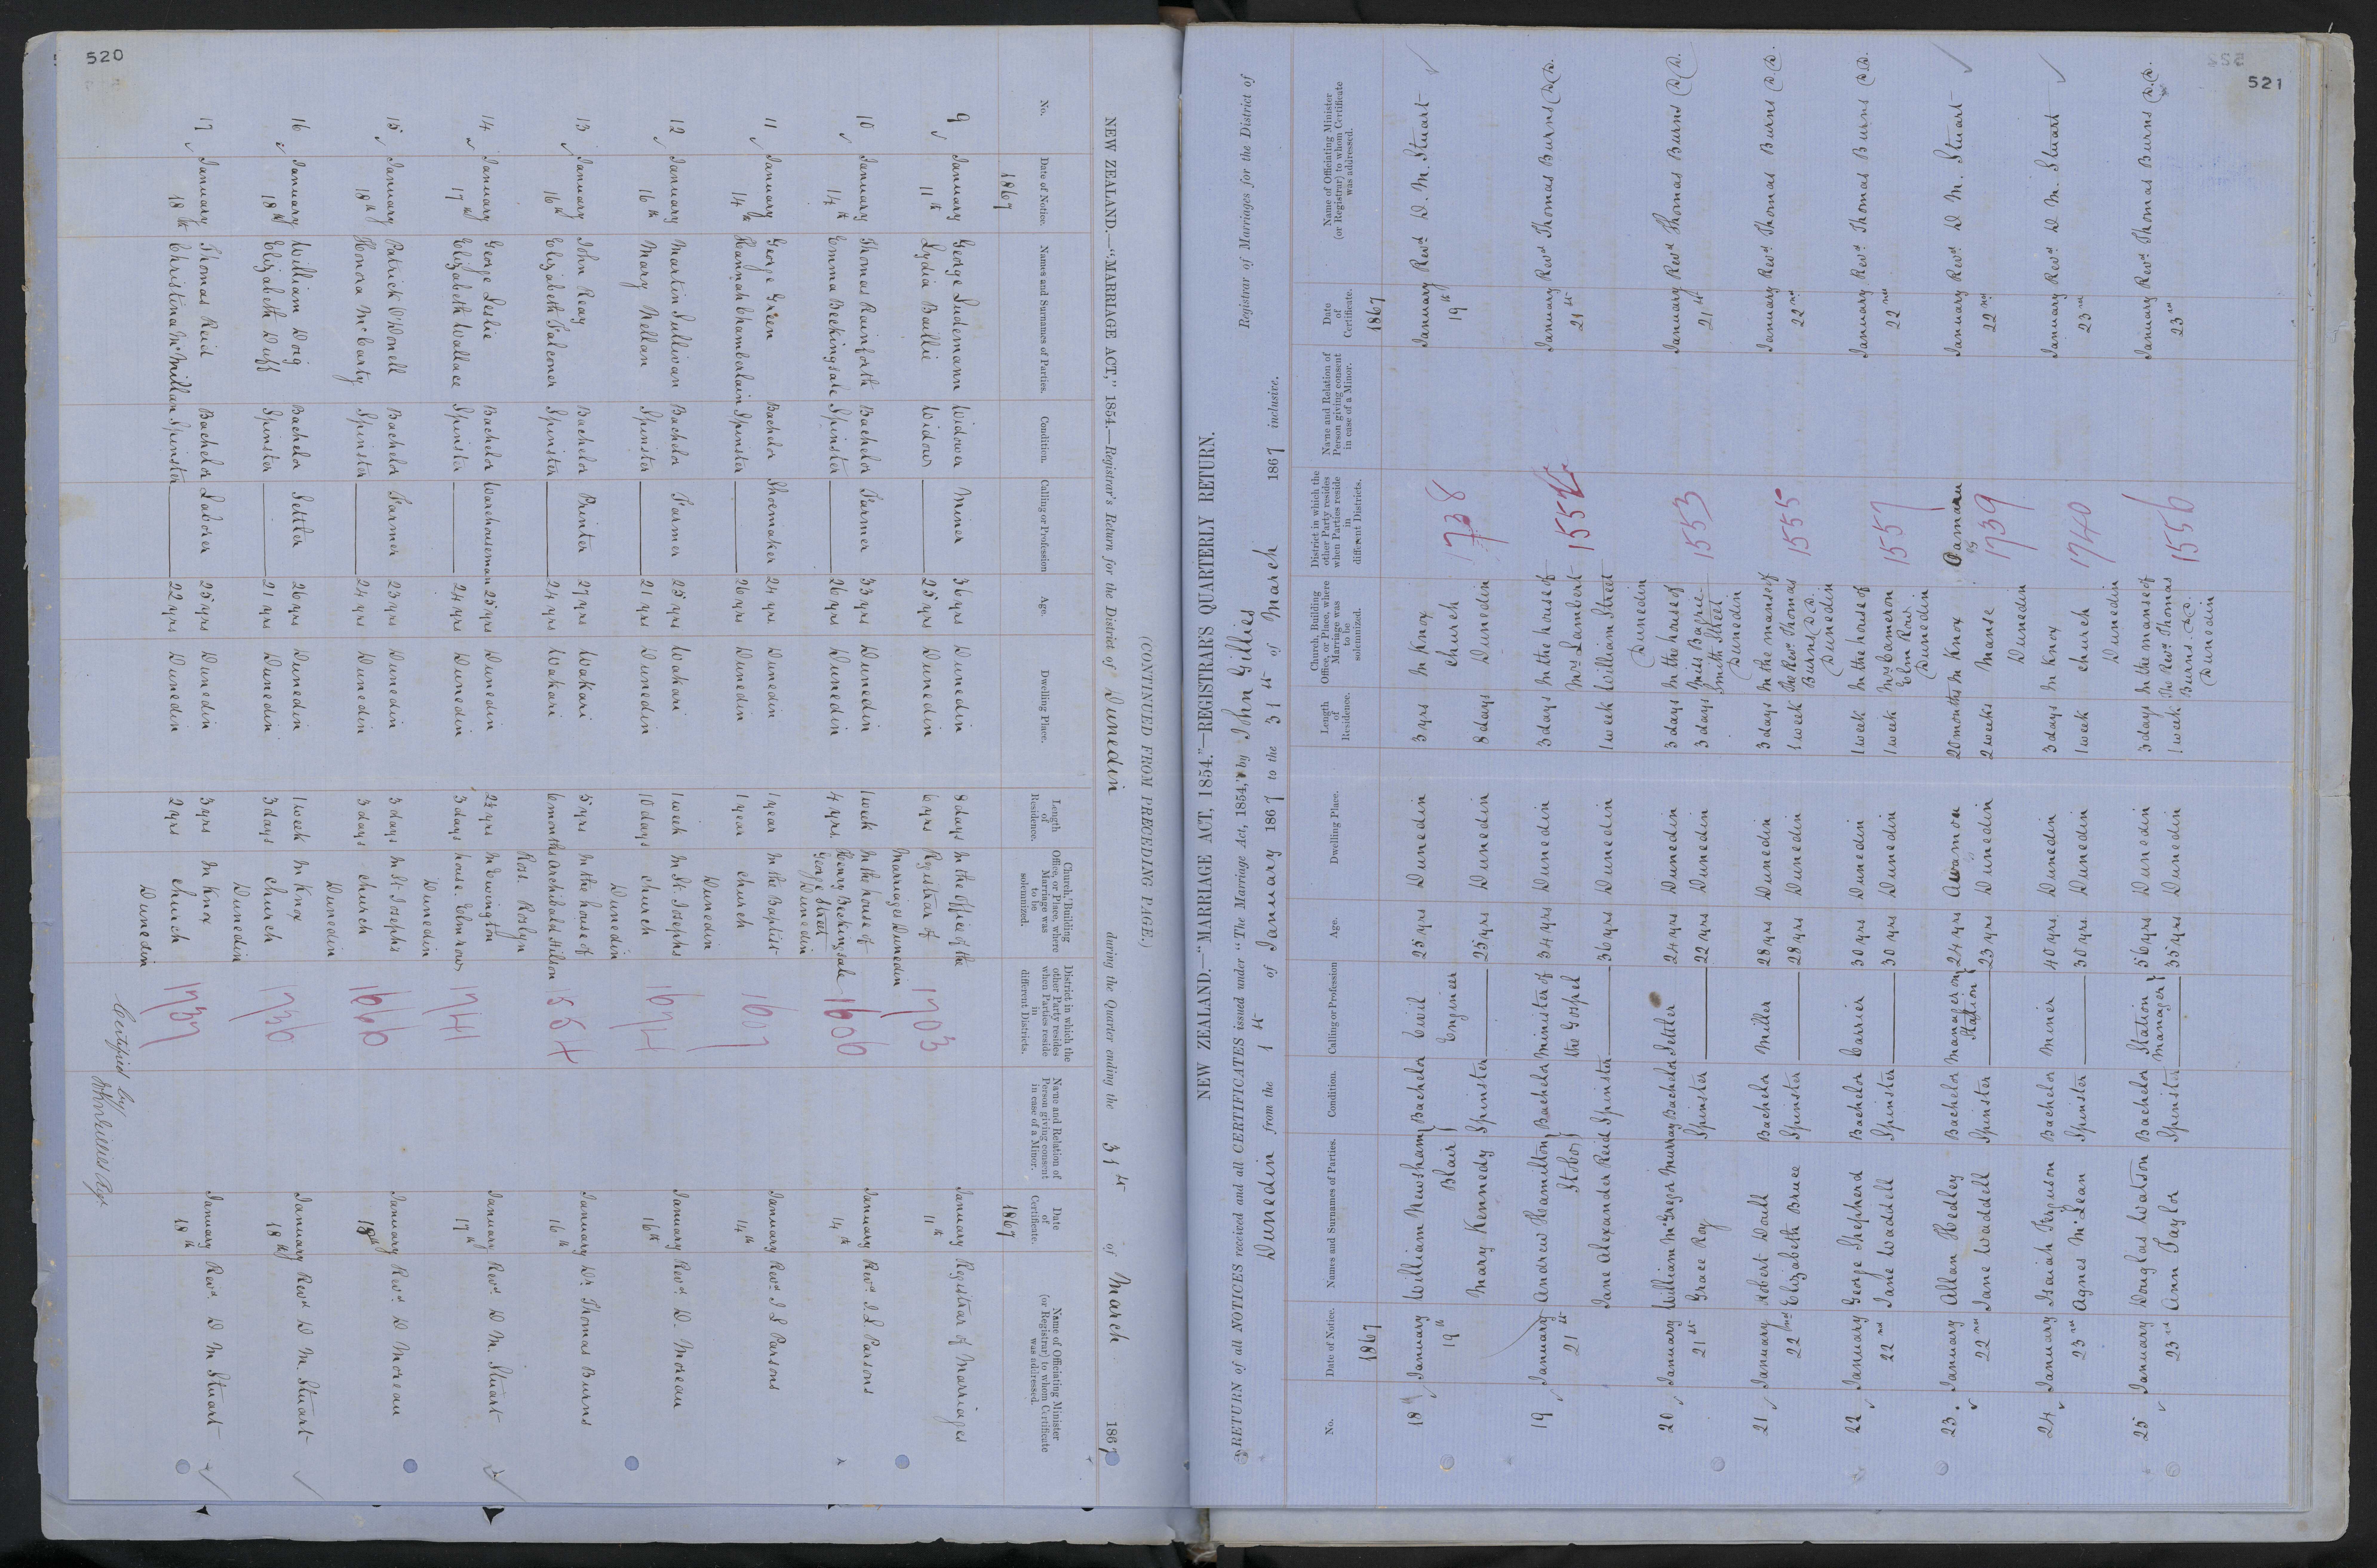 520
(CONTINUED FROM PRECEDING PAGE.)
NEW ZEALAND.—"MARRIAGE ACT," 1854.—Registrar's Return for the District of Dunedin during the Quarter ending the 31st of March 1867
No. Date of Notice. Names and Surnames of Parties. Condition. Calling or Profession Age. Dwelling Place. Length of Residence. Church, Building Office, or Place, where Marriage was to be solemnized. District in which the other Party resides when Parties reside in different Districts. Name and Relation of Person giving consent in case of a Minor. Date of Certificate. Name of Officiating Minister (or Registrar) to whom Certificate was addressed.
1867 1867
9 January George Ludemann Widower Miner 36 yrs Dunedin 8 days In the Office of the 1703 January Registrar of Marriages
11th Lydia Baillie Widow 25 yrs Dunedin 6 yrs Registrar of 11th
Marriages Dunedin
10 January Thomas Rainforth Bachelor Farmer 33 yrs Dunedin 1 week In the house of 1606 January Revd. J. L. Parsons
14th Emma Beckingsale Spinster 26 yrs Dunedin 4 yrs. Henry Beckingsale 14th
George Street
Dunedin
11 January George Green Bachelor Shoemaker 24 yrs Dunedin 1 year In the Baptist 1607 January Revd. J L Parsons
14th Hannah Chamberlain Spinster 26 yrs Dunedin 1 year church 14th
Dunedin
12 January Martin Sullivan Bachelor Farmer 25 yrs Wakari 1 week In St. Josephs 1674 January Revd. D. Moreau
16th Mary Nellan Spinster 21 yrs Dunedin 10 days church 16th
Dunedin
13 January John Reay Bachelor Printer 27 yrs Wakari 5 yrs In the house of 1554 January Dr. Thomas Burns
16th Elizabeth Falconer Spinster 24 yrs Wakari 6 months Archibald Hilson 16th
Ross. Roslyn
14 January George Leslie Bachelor Warehouseman 25 yrs Dunedin 2½ yrs In Dwington 1741 January Revd. D M. Stuart
17th Elizabeth Wallace Spinster 24 yrs Dunedin 3 days house Elm row 17th
Dunedin
15 January Patrick O'Donell Bachelor Farmer 23 yrs Dunedin 3 days In St. Josephs 1660 January Revd. D Moreau
18th Honora McCarty Spinster 24 yrs Dunedin 3 days church 18th
Dunedin
16 January William Doig Bachelor Settler 26 yrs Dunedin 1 week In Knox 1736 January Revd. D M. Stuart
18th Elizabeth Duff Spinster 21 yrs Dunedin 3 days church 18th
Dunedin
17 January Thomas Reid Bachelor Laborer 25 yrs Dunedin 3 yrs In Knox 1737 January Revd. D M Stuart
18th Christina McMillan Spinster 22 yrs Dunedin 2 yrs church 18th
Dunedin
Certified by
John Gillies Regr
521
NEW ZEALAND.—"MARRIAGE ACT, 1854."—REGISTRAR'S QUARTERLY RETURN.
RETURN of all NOTICES received and all CERTIFICATES issued under "The Marriage Act, 1854," by John Gillies Registrar of Marriages for the District of
Dunedin from the 1st of January 1867 to the 31st of March 1867 inclusive.
No. Date of Notice. Names and Surnames of Parties. Condition. Calling or Profession Age. Dwelling Place. Length of Residence. Church, Building Office, or Place, where Marriage was to be solemnized. District in which the other Party resides when Parties reside in different Districts. Name and Relation of Person giving consent in case of a Minor. Date of Certificate. Name of Officiating Minister (or Registrar) to whom Certificate was addressed.
1867 1867
18 January William Newsham Bachelor Civil 25 yrs Dunedin 3 yrs In Knox 1738 January Revd. D. M. Stuart
19th Blair Engineer church 19th
Mary Kennedy Spinster 25 yrs Dunedin 8 days Dunedin
19 January Andrew Hamilton Bachelor Minister of 34 yrs Dunedin 3 days In the house of 1552 January Revd. Thomas Burns D.D.
21st Stobo the Gospel Mrs Lambert 21st
Jane Alexander Reid Spinster 36 yrs Dunedin 1 week William Street
Dunedin
20 January William McGregor Murray Bachelor Settler 24 yrs Dunedin 3 days In the house of 1553 January Revd. Thomas Burns D.D.
21st Grace Roy Spinster 22 yrs Dunedin 3 days Smith Street 21st
Dunedin
21 January Robert Doull Bachelor Miller 28 yrs Dunedin 3 days In the manse of 1555 January Revd. Thomas Burns D.D.
22nd Elizabeth Bruce Spinster 28 yrs Dunedin 1 week The Revd. Thomas 22nd
Burns D.D.
Dunedin
22 January George Shepherd Bachelor Carrier 30 yrs Dunedin 1 week In the house of 1557 January Revd. Thomas Burns D.D.
22nd Jane Waddell Spinster 30 yrs Dunedin 1 week Mr Cameron 22nd
Elm Row
Dunedin
23 January Allan Hedley Bachelor Manager on 24 yrs 20 months In Knox Oamaru 1739 January Revd. D M. Stuart
22nd Jane Waddell Spinster Station 23 yrs Dunedin 2 weeks Manse 22nd
Dunedin
24 January Isaiah Ferguson Bachelor Miner 40 yrs. Dunedin 3 days In Knox 1740 January Revd. D M. Stuart
23rd Agnes McLean Spinster 30 yrs. Dunedin 1 week church 23rd
Dunedin
25 January Douglas Watson Bachelor Station 56 yrs Dunedin 3 days In the manse of 1556 January Revd. Thomas Burns D.D.
23rd Ann Taylor Spinster Manager 35 yrs Dunedin 1 week The Revd. Thomas 23rd
Burns D.D.
Dunedin